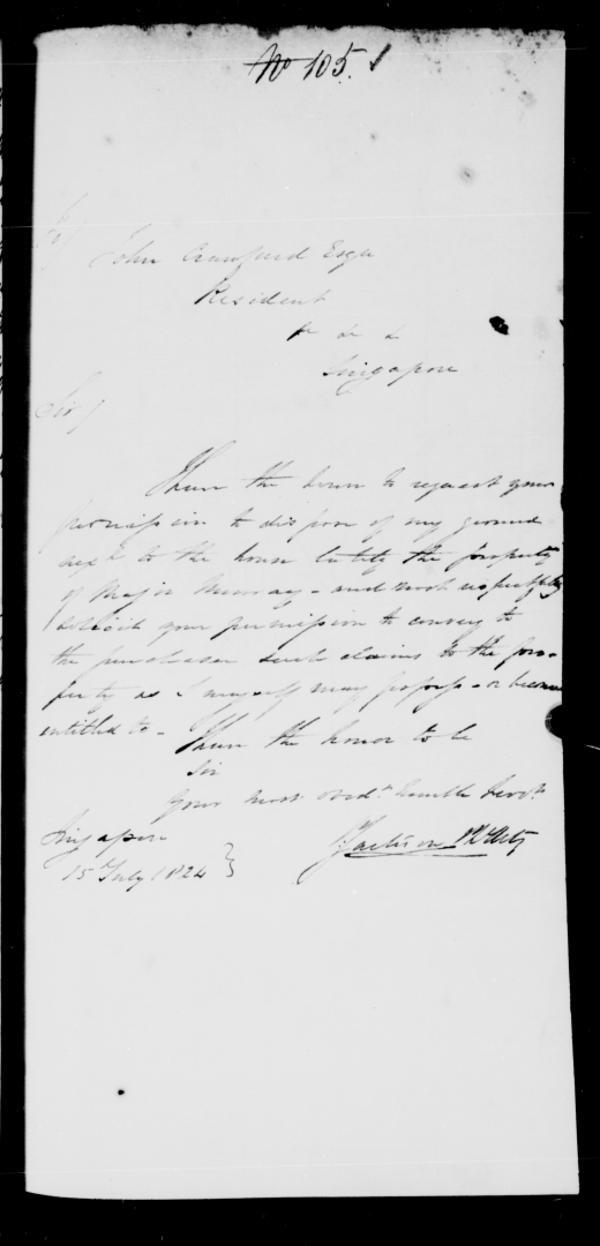 No 105.
To/
John Crawfurd Esqr
Resident
&c &c &c
Singapore
Sir/
I have the honor to request your
permission to dispose of my ground
next to the house lately the property
of Major Murray - and most respectfully
solicit your permission to convey to
the purchaser such claims to the pro-
perty as I myself may possess - or become
entitled to -
I have the honor to be
Sir
Your most obedt humble Servt
Singapore
15 July 1824
Jackson